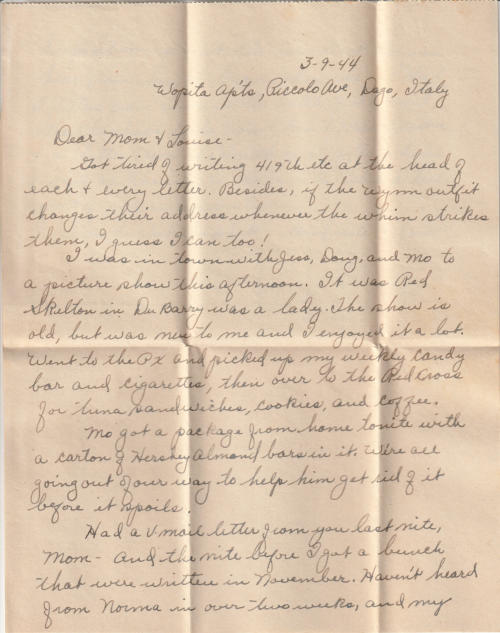 3-9-44
Wopita Ap'ts, Piccolo Ave, Dago, Italy
Dear Mom & Louise-
Got tired of writing 419th etc at the head of
each & every letter. Besides, if the Wynn outfit
changes their address whenever the whim strikes
them, I guess I can too!
I was in town with Jess, Doug, and Mo to
a picture show this afternoon. It was Red
Skelton in Du Barry was a lady. The show is
old, but was new to me and I enjoyed it a lot.
Went to the Px and picked up my weekly candy
bar and cigarettes, then over to the Red Cross
for tuna sandwiches, cookies, and coffee.
Mo got a package from home tonite with
a carton of Hershey Almond bars in it. We're all
going out of our way to help him get rid of it
before it spoils.
Had a V mail letter from you last nite,
Mom- and the nite before I got a bunch
that were written in November. Haven't heard
from Norma in over two weeks, and my